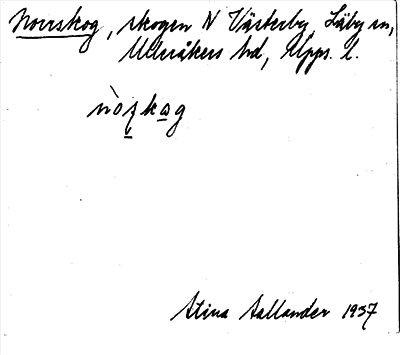 Norrskog, skogen N Västerby, Läby sn,
Ulleråkers hd, Upps. l.
nòʐkag
Stina Sallander 1937